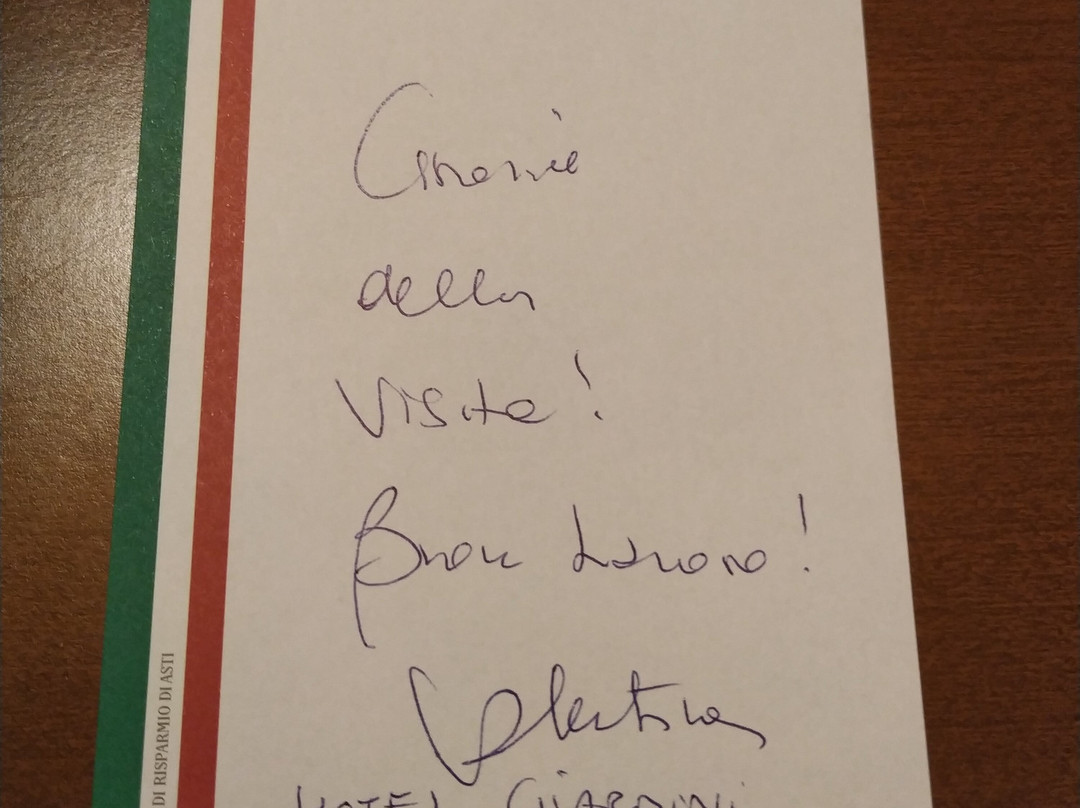 Grazie
della
visita!
Buon lavoro!
Valentina
HOTEL GIARDINI
DI RISPARMIO DI ASTI